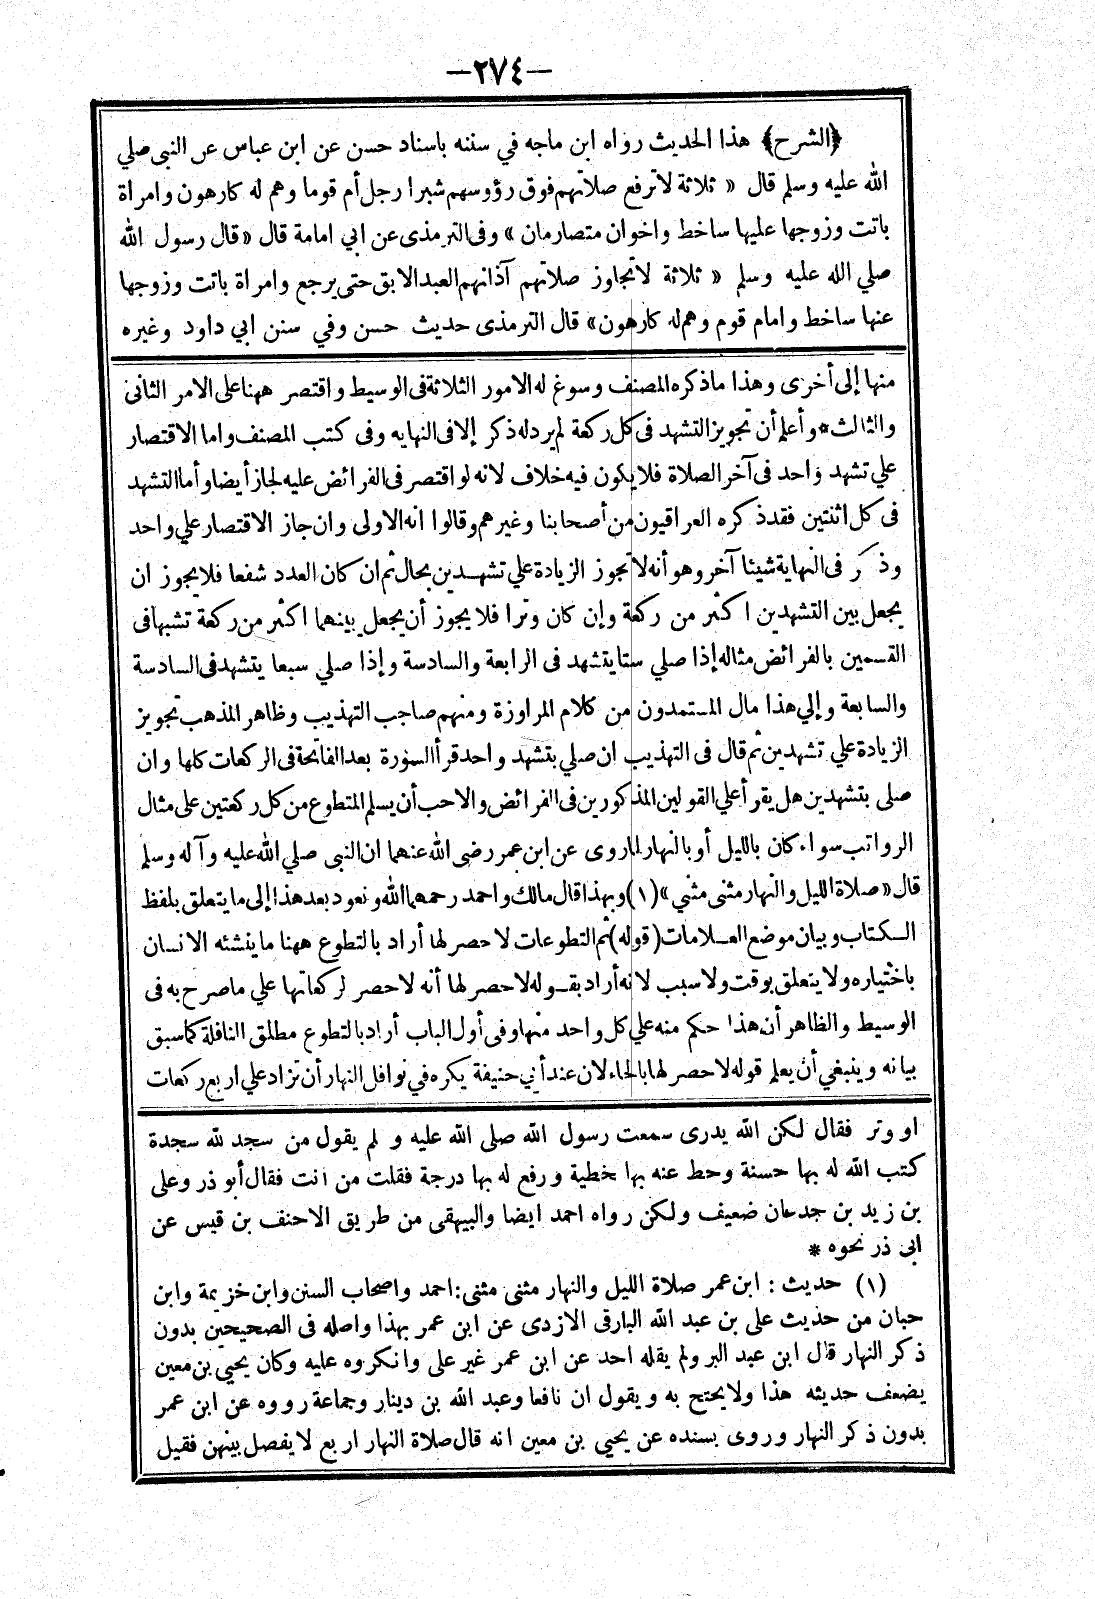 —٢٧٤—
﴿الشرح﴾ هذا الحديث رواه ابن ماجه في سننه باسناد حسن عن ابن عباس عن النبى صلي
الله عليه وسلم قال « ثلاثة لاترفع صلاتهم فوق رؤوسهم شبرا رجل أم قوما وهم له كارهون وامراة
باتت وزوجها عليها ساخط واخوان متصارمان » وفى الترمذى عن ابي امامة قال « قال رسول الله
صلي الله عليه وسلم « ثلاثة لاتجاوز صلاتهم آذانهم العبد الابق حتى يرجع وامراة باتت وزوجها
عنها ساخط وامام قوم وهم له كارهون» قال الترمذى حديث حسن وفي سنن ابي داود وغيره
منها إلى أخرى وهذا ماذكره المصنف وسوغ له الامور الثلاثة فى الوسيط واقتصر ههنا على الامر الثانى
والثالث* وأعلم أن تجويز التشهد فى كل ركعة لم يرد له ذكر إلا فى النهايه وفى كتب المصنف واما الاقتصار
علي تشهد واحد فى آخر الصلاة فلا يكون فيه خلاف لانه لو اقتصر فى الفرائض عليه لجاز أيضا وأما التشهد
فى كل اثنتين فقد ذكره العراقيون من أصحابنا وغيرهم وقالوا انه الاولى وان جاز الاقتصار علي واحد
وذكر فى النهاية شيئا آخر وهو أنه لا تجوز الزيادة علي تشهدين بحال ثم ان كان العدد شفعا فلا يجوز ان
يجعل بين التشهدين اكثر من ركعة وإن كان وترا فلا يجوز أن يجعل بينهما اكثر من ركعة تشبها فى
القسمين بالفرائض مثاله إذا صلي ستا يتشهد فى الرابعة والسادسة وإذا صلي سبعا يتشهد فى السادسة
والسابعة وإلي هذا مال المستمدون من كلام المراوزة ومنهم صاحب التهذيب وظاهر المذهب تجويز
الزيادة علي تشهدين ثم قال فى التهذيب ان صلي بتشهد واحد قرأ السورة بعد الفاتحة فى الركعات كلها وان
صلى بتشهدين هل يقرأ علي القولين المذكورين فى الفرائض والاحب أن يسلم المتطوع من كل ركعتين على مثال
الرواتب سواء كان بالليل أو بالنهار لما روى عن ابن عمر رضى الله عنهما ان النبى صلي الله عليه وآله وسلم
قال « صلاة الليل والنهار مثنى مثني » (١) وبهذا قال مالك واحمد رحمهما الله ونعود بعد هذا إلى ما يتعلق بلفظ
الكتاب وبيان موضع العلامات (قوله) ثم التطوعات لا حصر لها أراد بالتطوع ههنا ما ينشئه الانسان
باختياره ولا يتعلق بوقت ولا سبب لانه أراد بقوله لا حصر لها أنه لا حصر لركعاتها علي ما صرح به فى
الوسيط والظاهر أن هذا حكم منه علي كل واحد منها وفى أول الباب أراد بالتطوع مطلق النافلة كما سبق
بيانه وينبغي أن يعلم قوله لا حصر لها بالحاء لان عند أبي حنيفة يكره في نوافل النهار أن تزاد علي اربع ركعات
او وتر فقال لكن الله يدرى سمعت رسول الله صلى الله عليه و لم يقول من سجد لله سجدة
كتب الله له بها حسنة وحط عنه بها خطية ورفع له بها درجة فقلت من انت فقال أبو ذر وعلى
بن زيد بن جدعان ضعيف ولكن رواه احمد ايضا والبيهقى من طريق الاحنف بن قيس عن
ابى ذر نحوه *
(١) حديث : ابن عمر صلاة الليل والنهار مثنى مثنى: احمد واصحاب السنن وابن خزيمة وابن
حبان من حديث على بن عبد الله البارقى الازدى عن ابن عمر بهذا واصله فى الصحيحين بدون
ذكر النهار قال ابن عبد البر ولم يقله احد عن ابن عمر غير على وانكروه عليه وكان يحيي بن معين
يضعف حديثه هذا ولا يحتج به ويقول ان نافعا وعبد الله بن دينار وجماعة رووه عن ابن عمر
بدون ذكر النهار وروى بسنده عن يحيي بن معين انه قال صلاة النهار اربع لا يفصل بينهن فقيل